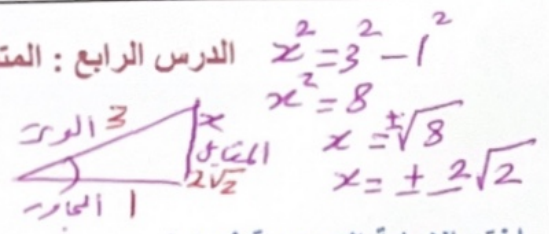 الدرس الرابع : المت
x² = 3² - 1²
x² = 8
x = ±√8
x = ± 2√2
الوتر 3
x
المقابل
2√2
المجاور 1